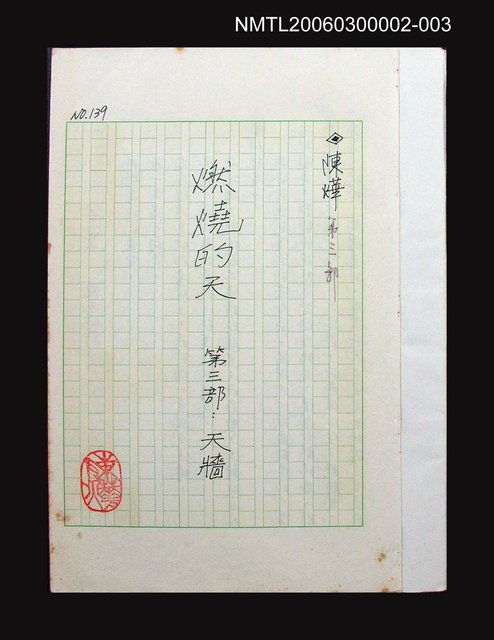 NMTL20060300002-003
NO.139
◈陳燁 第三部
燃燒的天 第三部：天牆
陳燁